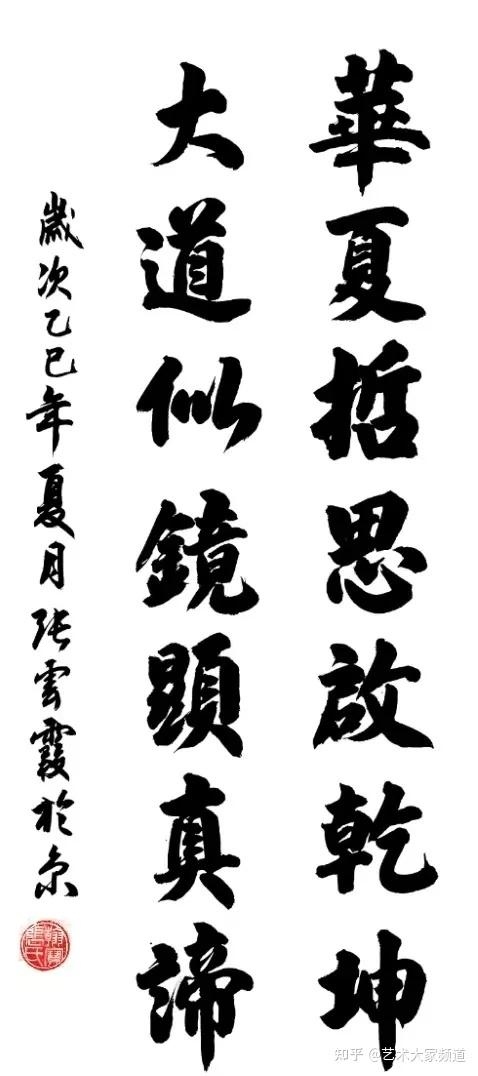 華夏哲思啟乾坤
大道似鏡顯真諦
歲次乙巳年夏月張雲霞於京
知乎 @艺术大家频道